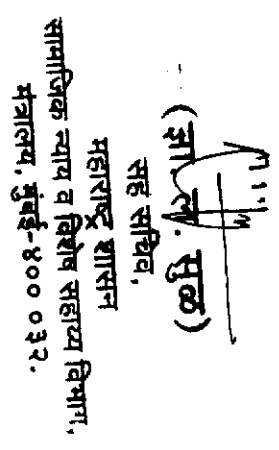 (ज्ञा. ल. सुळ)
सह सचिव,
महाराष्ट्र शासन
सामाजिक न्याय व विशेष सहाय्य विभाग,
मंत्रालय, मुंबई-४०० ०३२.